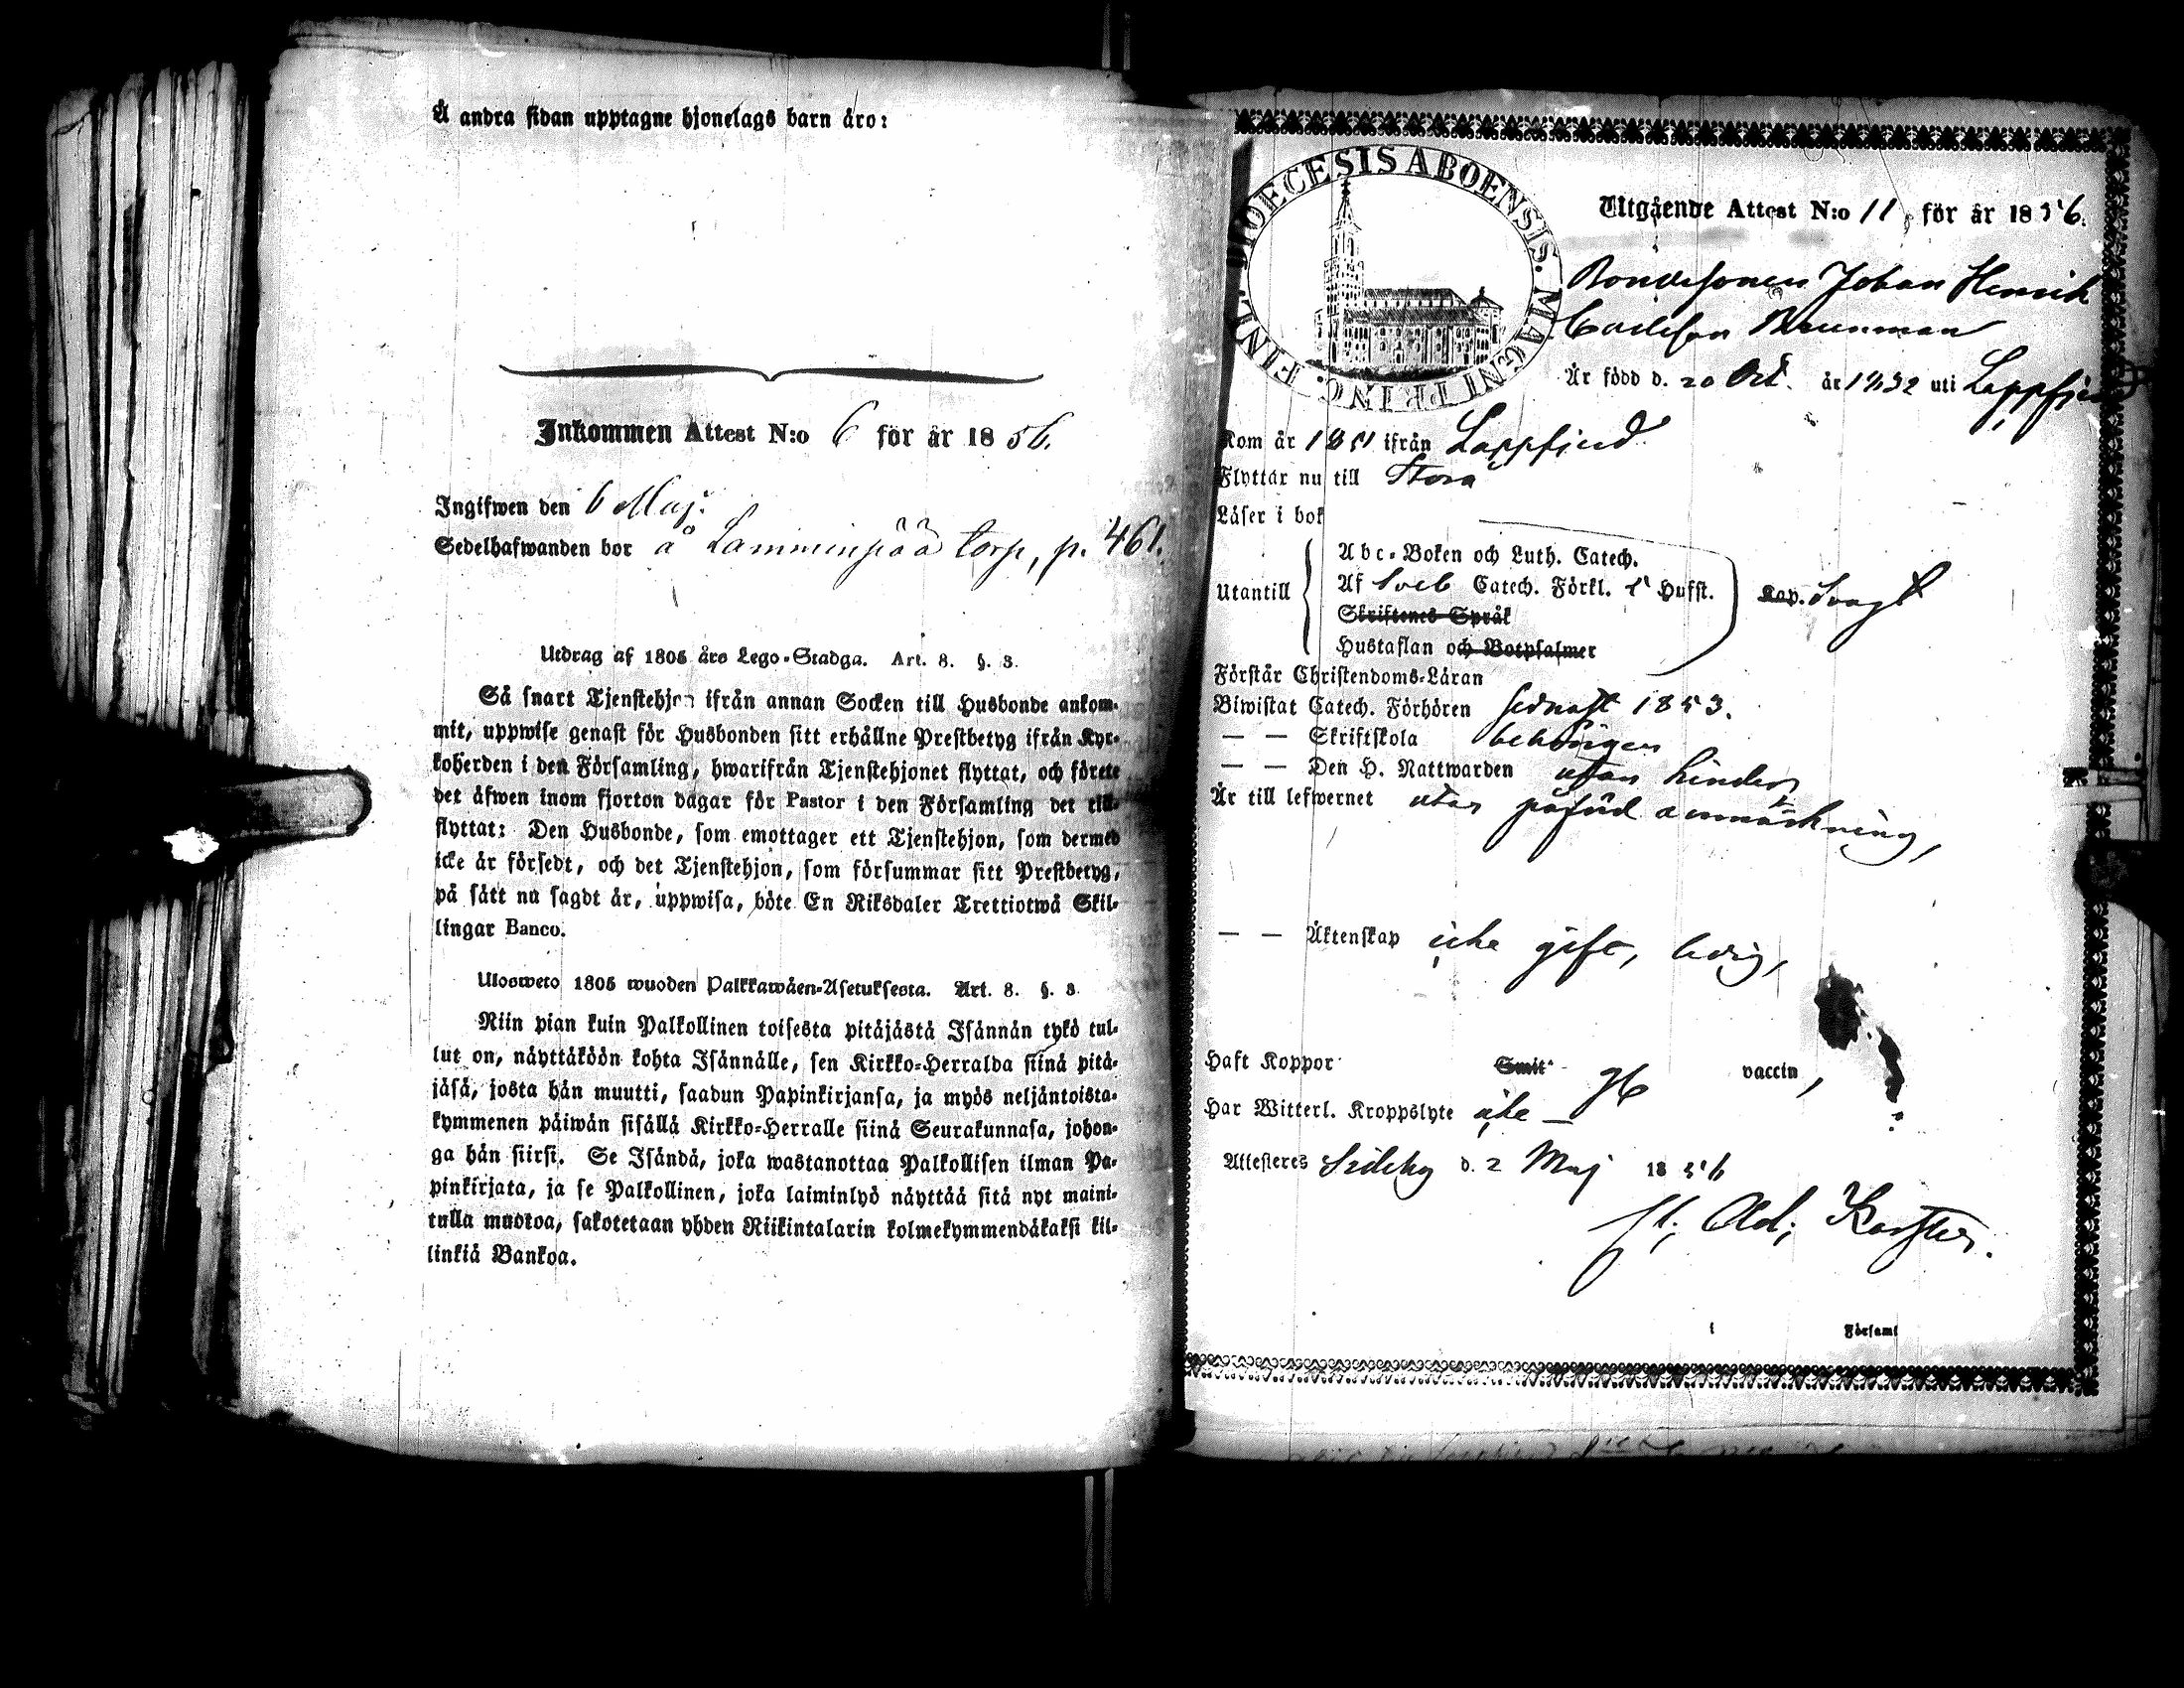 Å andra sidan upptagne hjonelags barn äro:
Inkommen Attest N:o 6 för år 1856.
Ingifwen den 6 Maj.
Sedelhafwanden bor å Lamminpää torp, p. 461.
Utdrag af 1805 års Lego-Stadga. Art. 8. §. 3.
Så snart Tjenstehjon ifrån annan Socken till Husbonde ankom-
mit, uppwise genast för Husbonden sitt erhållne Prestbetyg ifrån Kyr-
koherden i den Församling, hwarifrån Tjenstehjonet flyttat, och förete
det äfwen inom fjorton dagar för Pastor i den Församling det till-
flyttat: Den Husbonde, som emottager ett Tjenstehjon, som dermed
icke är försedt, och det Tjenstehjon, som försummar sitt Prestbetyg,
på sätt nu sagdt är, uppwisa, böte En Riksdaler Trettiotwå Skil-
lingar Banco.
Ulosweto 1805 wuoden Palkkawäen-Asetuksesta. Art. 8. §. 3.
Niin pian kuin Palkollinen toisesta pitäjästä Isännän tykö tul-
lut on, näyttäköön kohta Isännälle, sen Kirkko-Herralda siinä pitä-
jäsä, josta hän muutti, saadun Papinkirjansa, ja myös neljäntoista-
kymmenen päiwän sisällä Kirkko-Herralle siinä Seurakunnasa, johon-
ga hän siirsi. Se Isändä, joka wastanottaa Palkollisen ilman Pa-
pinkirjata, ja se Palkollinen, joka laiminlyö näyttää sitä nyt maini-
tulla muotoa, sakotetaan yhden Riikintalarin kolmekymmendäkaksi kil-
linkiä Bankoa.
DIOECESIS ABOENSIS. MAGNI PRINC. FINL.
Utgående Attest N:o 11 för år 1856.
Bondesonen Johan Henrik
Carlsson Brunman
Är född d. 20 Oct. år 1832 uti Lappfjerd
Kom år 1851 ifrån Lappfjerd
Flyttar nu till Storå
Läser i bok
Utantill
Abc-Boken och Luth. Catech.
Af Sveb Catech. Förkl. 5 Hufst.
Skriftenes Språk
Hustaflan och Botpsalmer
Kap. Svagt
Förstår Christendoms-Läran
Biwistat Catech. Förhören sednast 1853.
— — Skriftskola behörigen
— — Den H. Nattwarden utan hinder,
Är till lefwernet utan påförd anmärkning,
— — Äktenskap icke gift, ledig,
Haft Koppor Smit- gb vaccin,
Har Witterl. Kroppslyte icke —
Attesteres Sideby d. 2 Maj 1856
Ad; Karsten.
i Församl